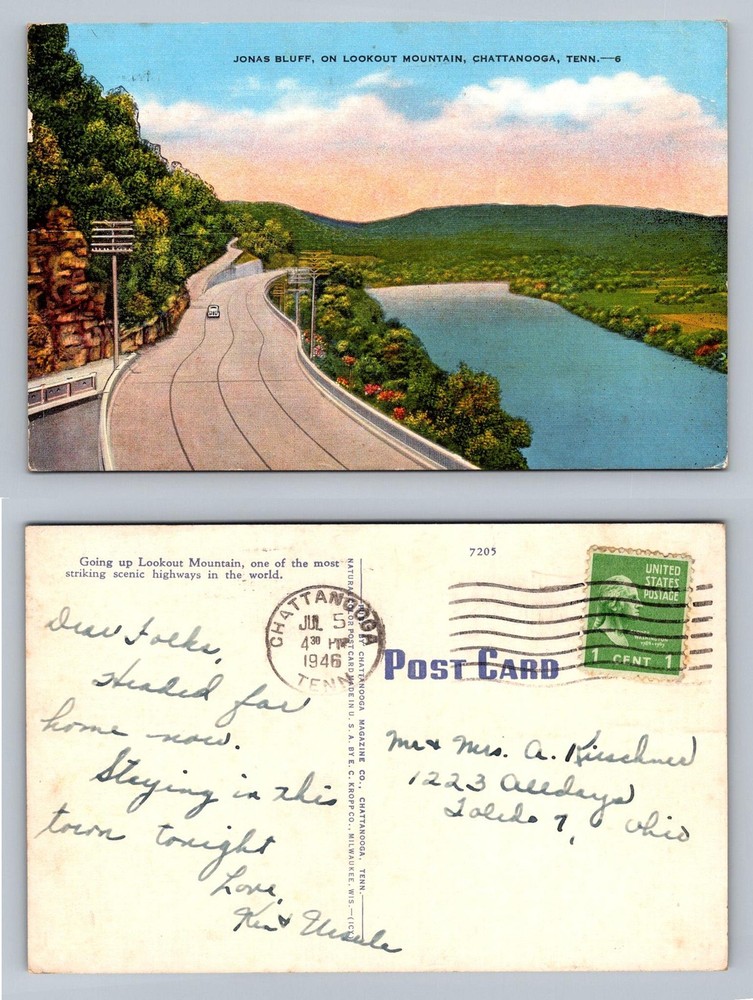 JONAS BLUFF, ON LOOKOUT MOUNTAIN, CHATTANOOGA, TENN.—6
Going up Lookout Mountain, one of the most
striking scenic highways in the world.
Dear Folks,
Headed for
home now.
Staying in this
town tonight
Love,
Ken &
CHATTANOOGA
JUL 5
4 30 PM
1946
TENN.
COLOR POST CARD MADE IN U. S. A. BY E. C. KROPP CO., MILWAUKEE, WIS.
BY CHATTANOOGA MAGAZINE CO., CHATTANOOGA, TENN.
7205
UNITED
STATES
POSTAGE
WASHINGTON
1 CENT 1
POST CARD
Mr & Mrs. A. Kirschner
1223 Alldays
Toledo 7, Ohio